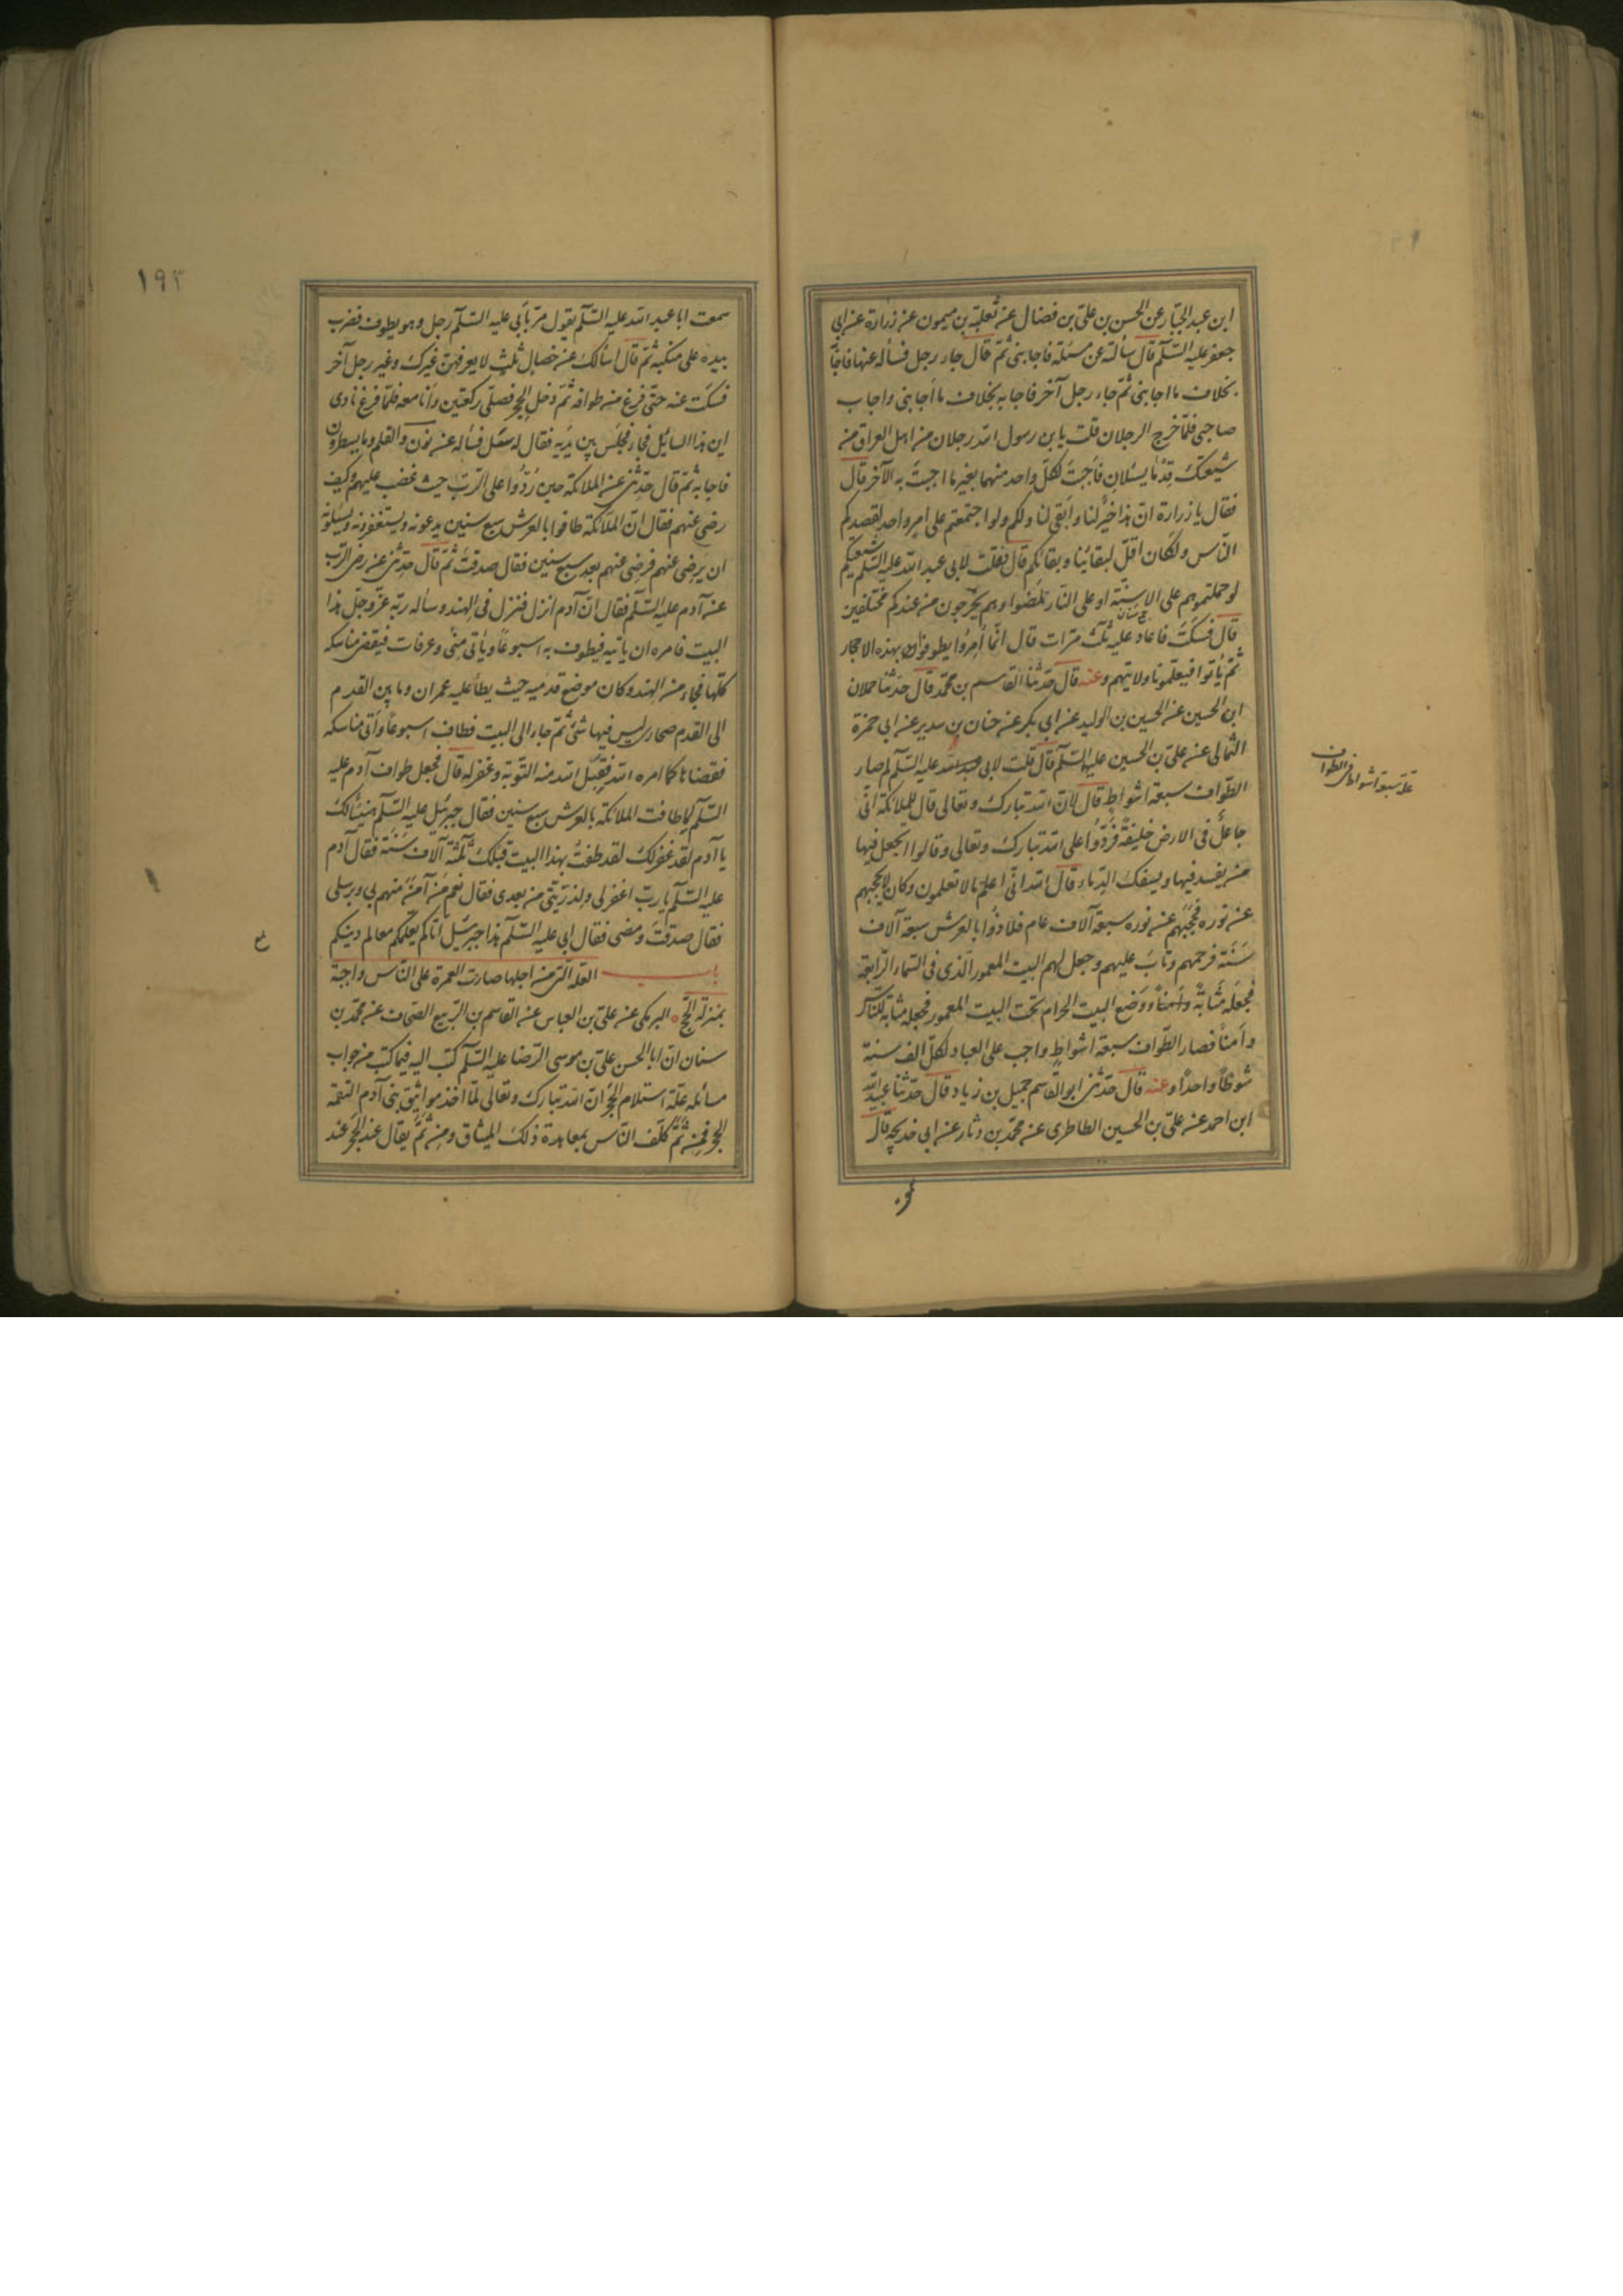 ابن عبد الجبار عن الحسن بن علي بن فضال عن ثعلبة بن ميمون عن زرارة عن ابي
جعفر عليه السلم قال سألته عن مسئلة فاجابني ثم قال جاء رجل فسأله عنها فاجابه
بخلاف ما اجابني ثم جاء رجل آخر فاجابه بخلاف ما اجابني واجاب
صاحبي فلما خرج الرجلان قلت يا بن رسول الله رجلان من اهل العراق من
شيعتك قدما يسئلان فاجبت لكل واحد منهما بغير ما اجبت به الآخر قال
فقال يا زرارة ان هذا خير لنا وابقى لنا ولكم ولو اجتمعتم على امر واحد لقصدكم
الناس ولكان اقل لبقائنا وبقائكم قال فقلت لابي عبد الله عليه السلم شيعتكم
لو حملتموهم على الاسنة او على النار لمضوا وهم يخرجون من عندكم مختلفين
قال فسكت فاعاد عليه ثلث مرات قال انما امروا ان يطوفوا بهذه الاحجار
ثم يأتوا فيعلمونا ولايتهم وعنه قال حدثنا القاسم بن محمد قال حدثنا حملان
ابن الحسين عن الحسين بن الوليد عن ابي بكر عن حنان بن سدير عن ابي حمزة
الثمالي عن علي بن الحسين عليه السلم قال قلت لابي عبد الله عليه السلم لم صار
الطواف سبعة اشواط قال لان الله تبارك وتعالى قال للملائكة اني
جاعل في الارض خليفة فردوا على الله تبارك وتعالى وقالوا اتجعل فيها
من يفسد فيها ويسفك الدماء قال الله اني اعلم ما لا تعلمون وكان لا يحجبهم
عن نوره فحجبهم عن نوره سبعة آلاف عام فلاذوا بالعرش سبعة آلاف
سنة فرحمهم وتاب عليهم وجعل لهم البيت المعمور الذي في السماء الرابعة
فجعله مثابة وأمنا ووضع البيت الحرام تحت البيت المعمور فجعله مثابة للناس
وأمنا فصار الطواف سبعة اشواط واجب على العباد لكل الف سنة
شوطا واحدا وعنه قال حدثني ابو القاسم حميل بن زياد قال حدثنا عبد الله
ابن احمد عن علي بن الحسين الطاطري عن محمد بن دثار عن ابي خديجة قال
علة سبعة اشواط في الطواف
١٩٣
سمعت ابا عبد الله عليه السلم يقول مر بأبي عليه السلم رجل وهو يطوف فضرب
بيده على منكبه ثم قال اسالك عن خصال ثلث لا يعرفهن غيرك وغير رجل آخر
فسكت عنه حتى فرغ من طوافه ثم دخل الحجر فصلى ركعتين وأنا معه فلما فرغ نادى
اين هذا السايل فجاء فجلس بين يديه فقال له سل فسأله عن نون والقلم وما يسطرون
فاجابه ثم قال حدثني عن الملائكة حين ردوا على الرب حيث غضب عليهم وكيف
رضي عنهم فقال ان الملائكة طافوا بالعرش سبع سنين يدعونه ويستغفرونه ويسئلونه
ان يرضى عنهم فرضي عنهم بعد سبع سنين فقال صدقت ثم قال حدثني عن رضى الرب
عن آدم عليه السلم فقال ان آدم انزل فنزل في الهند وسأله ربه عز وجل هذا
البيت فامره ان ياتيه فيطوف به اسبوعا ويأتي منى وعرفات فيقضي مناسكه
كلها فجاء من الهند وكان موضع قدميه حيث يطأ عليه عمران وما بين القدم
الى القدم صحارى ليس فيها شئ ثم جاء الى البيت فطاف اسبوعا وأتى مناسكه
فقضاها كما امره الله فقبل الله منه التوبة وغفر له قال فجعل طواف آدم عليه
السلم لما طافت الملائكة بالعرش سبع سنين فقال جبرئيل عليه السلم هنيئا لك
يا آدم لقد غفر لك لقد طفت بهذا البيت قبلك ثلثة آلاف سنة فقال آدم
عليه السلم يا رب اغفر لي ولذريتي من بعدي فقال نعم من آمن منهم بي وبرسلي
فقال صدقت ومضى فقال ابي عليه السلم هذا جبرئيل أتاكم يعلمكم معالم دينكم
باب العلة التي من اجلها صارت العمرة على الناس واجبة
بمنزلة الحج البرمكي عن علي بن العباس عن القاسم بن الربيع الصحاف عن محمد بن
سنان ان ابا الحسن علي بن موسى الرضا عليه السلم كتب اليه فيما كتب من جواب
مسائله علة استلام الحجر ان الله تبارك وتعالى لما اخذ مواثيق بني آدم التقمه
الحجر فمن ثم كلف الناس بمعاهدة ذلك الميثاق ومن ثم يقال عند الحجر عند